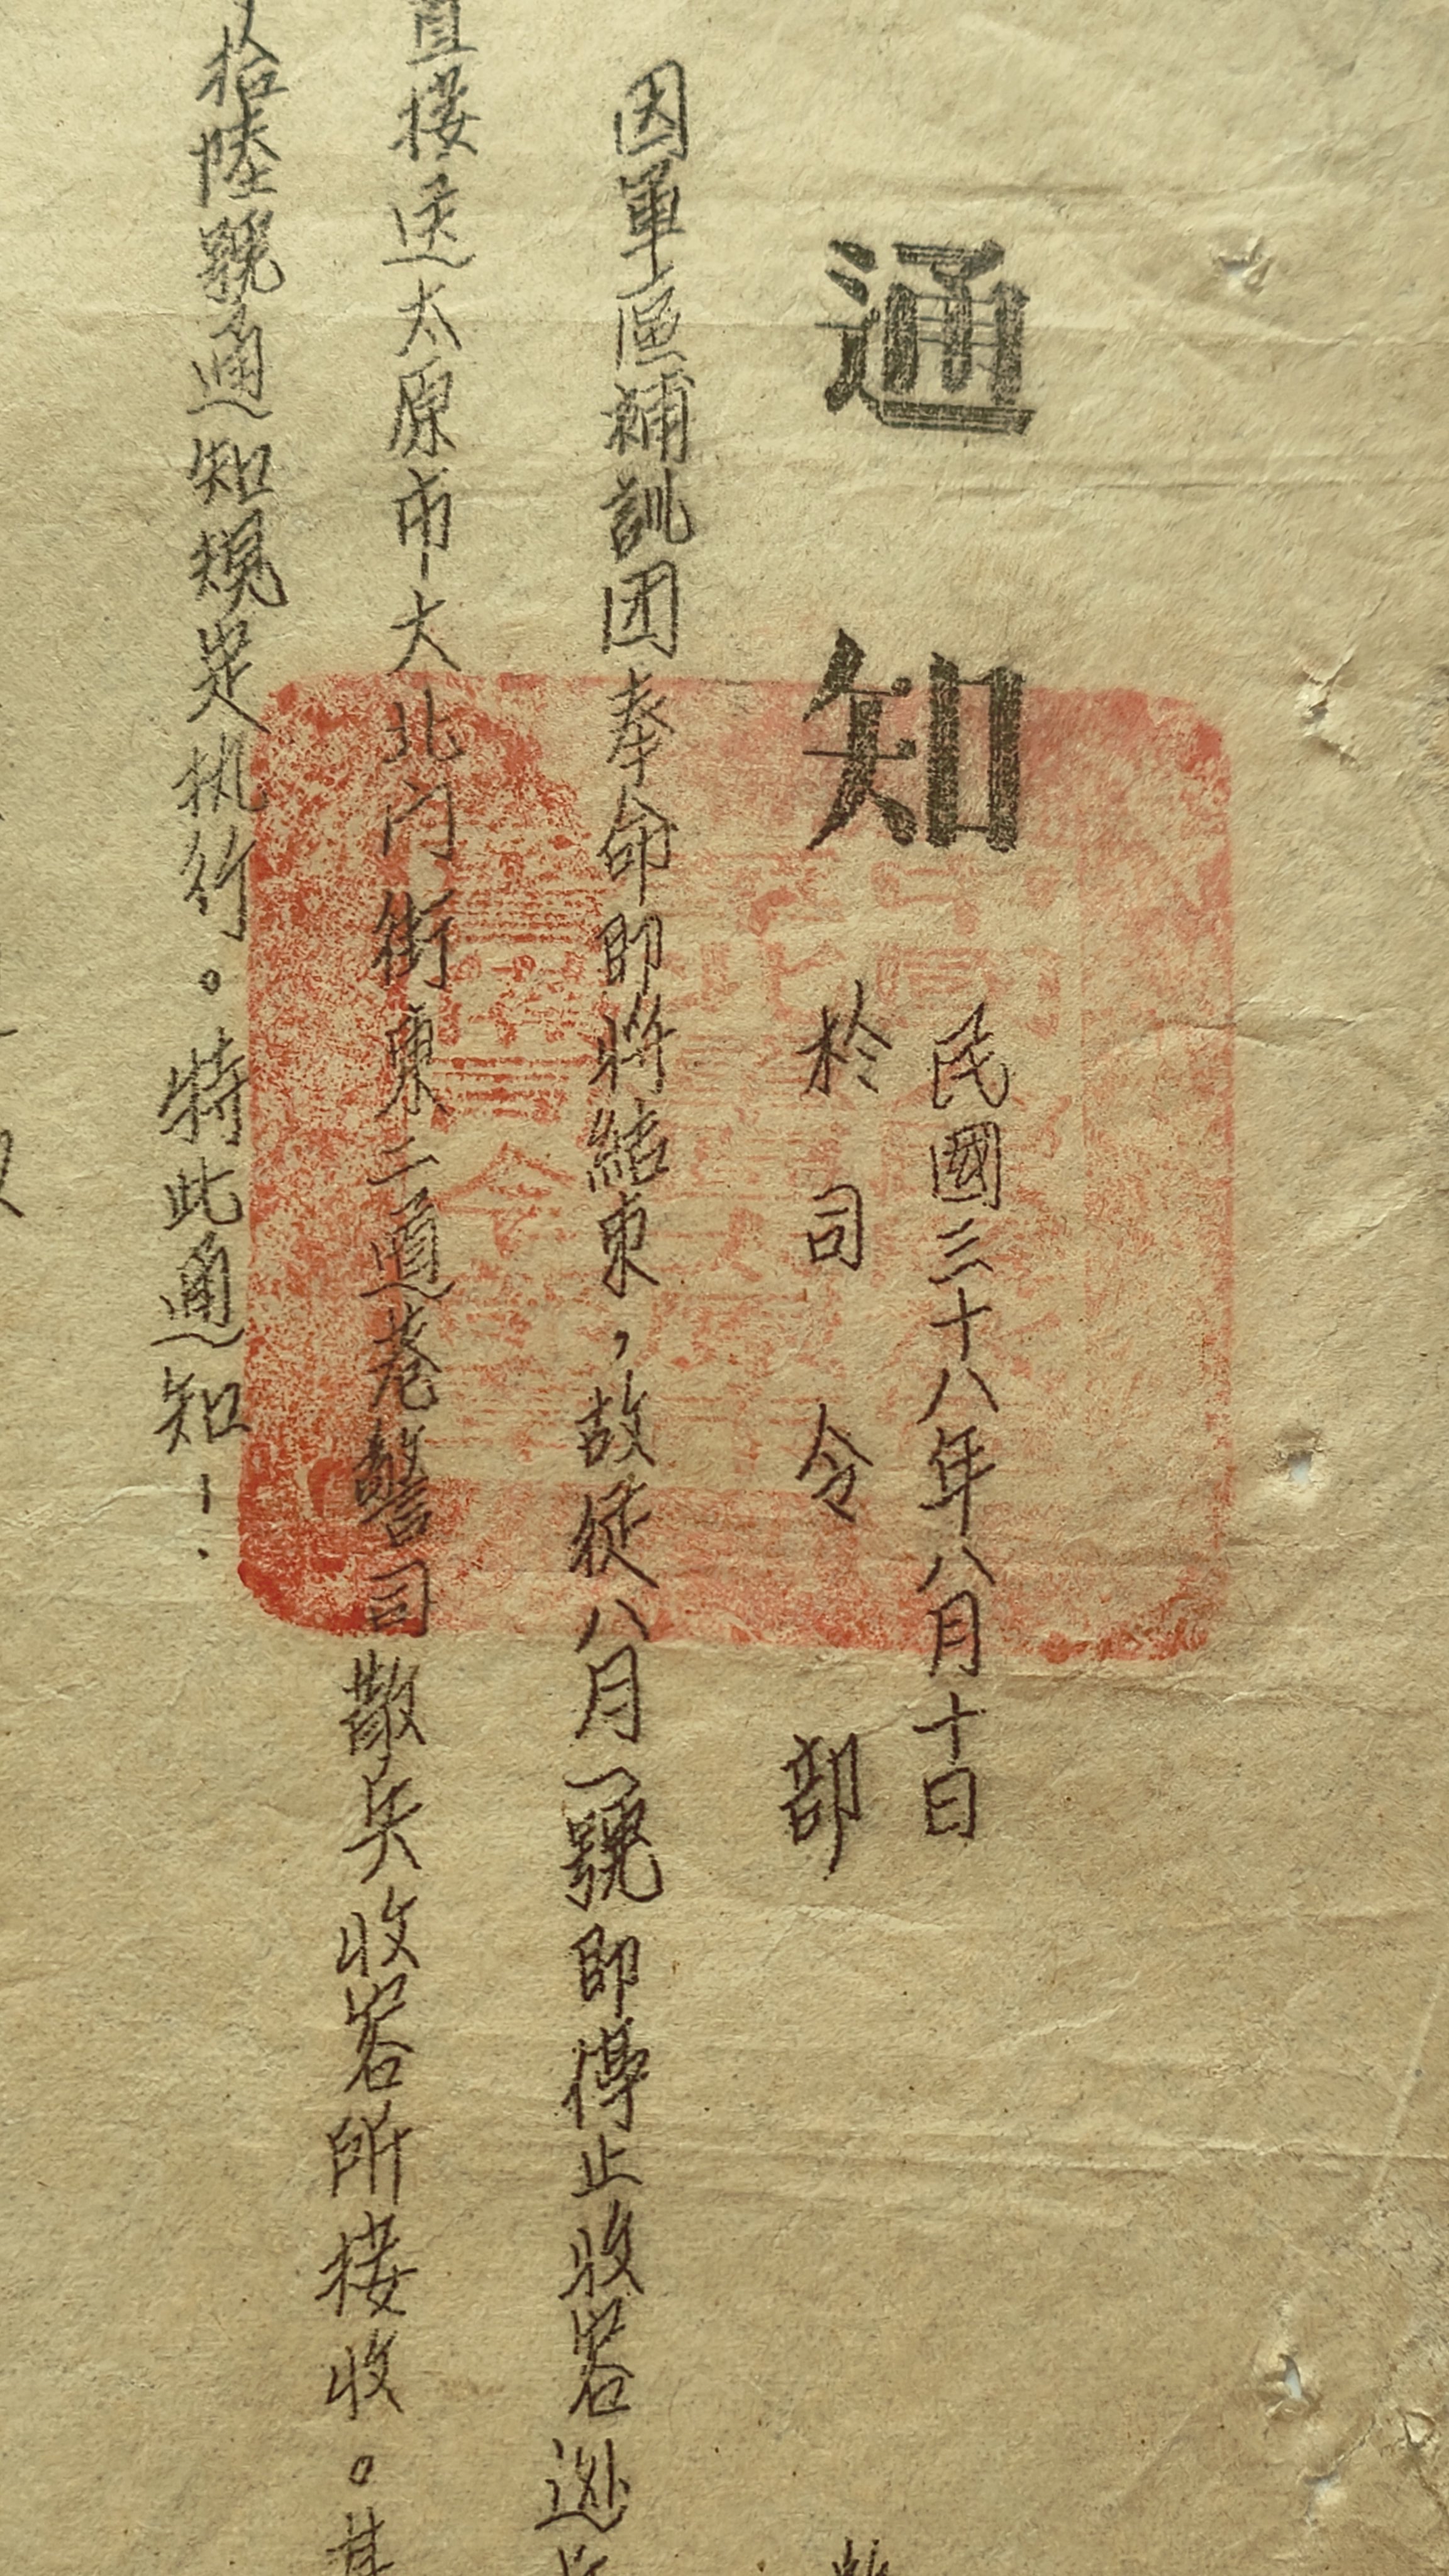 通知
民國三十八年八月十日
於司令部
因軍區補訓团奉命即将結束，故從八月一號即停止收容逃
直接送太原市大北门街東二道巷警司散兵收容所接收。其
拾陸號通知規定执行。特此通知！